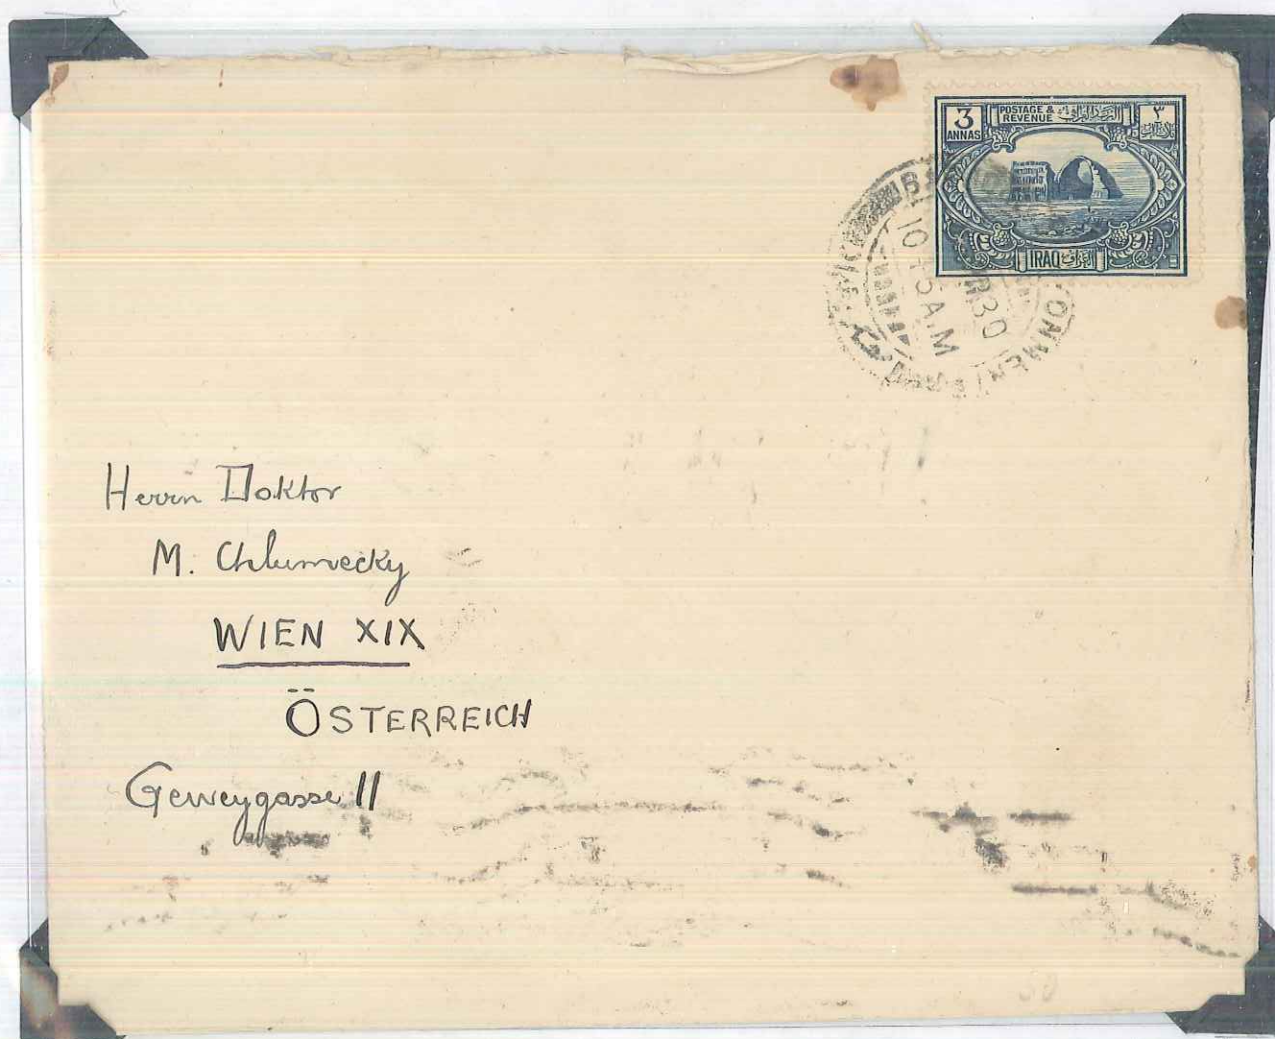 3
ANNAS
POSTAGE &
REVENUE
٣
IRAQ العراق
10
45 A.M
R30
Herrn Doktor
M. Chlumecky
WIEN XIX
ÖSTERREICH
Geweygasse 11